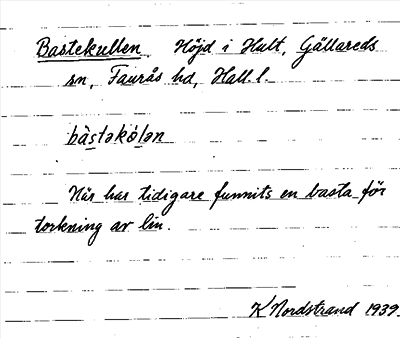 Bastekullen. Höjd i Hult, Gällareds
sn, Faurås hd, Hall. l.
bàstəkö̀lən
När har tidigare funnits en basta för
torkning av lin.
K Nordstrand 1939.